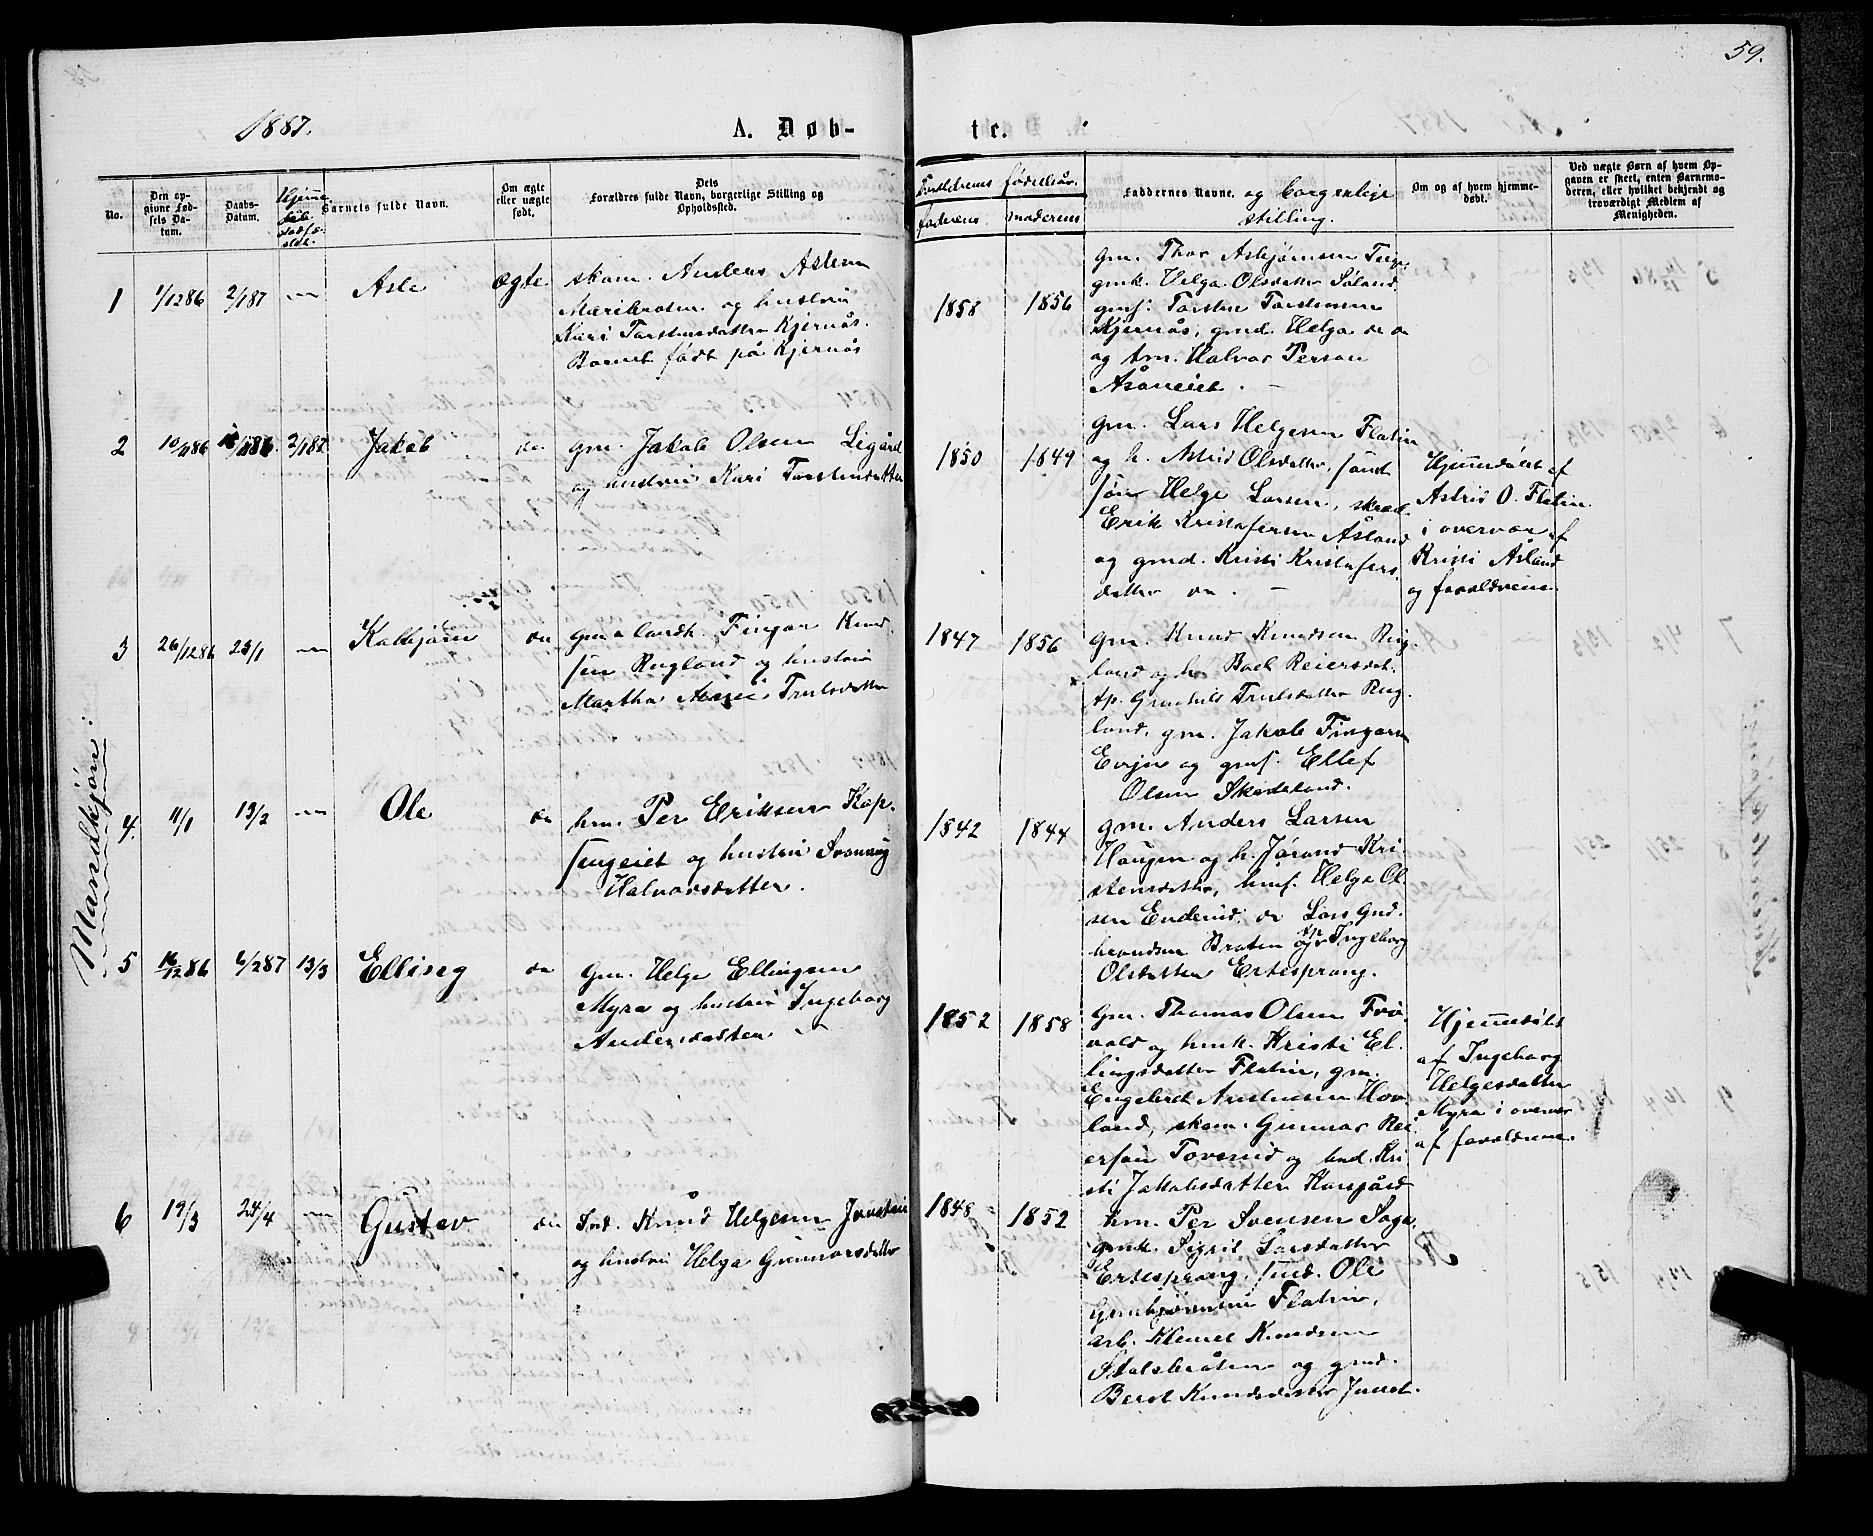 59.
1887.
A. Døb-
te.
No.
Den op-
givne Fød-
sels Da-
tum.
Daabs-
Datum.
Hjemme-
Barnets fulde Navn.
Om ægte
eller uægte
født.
Dets
Forældres fulde Navn, borgerlige Stilling og
Opholdssted.
Forældrenes fødselsår.
faderens
moderens
Faddernes Navne. og borgerlige
stilling.
Om og af hvem hjemme-
døbt.
Ved uægte Børn af hvem Op-
gaven er skeet, enten Barnemo-
deren, eller hvilket bekjendt og
troværdigt Medlem af
Menigheden.
Mandkjøn:
1
1/1286
2/187
Asle
ægte
skom. Anders Aslesen
Mæribroten og hustru
Kari Torstensdatter Kjernås.
Barnet født på Kjernås
1858
1856
gm. Thor Asbjørnsen
gmk. Helga Olsdatter Søland
gmf. Torsten Torstensen
Kjernås, gmd. Helga do do
og tm. Halvor Person
Åsaneiet.
2
10/1186
2/187
Jakob
do
gm. Jakob Olsen Ligård
og hustru Kari Torstensdatter
1850
1849
gm. Lars Helgesen Flatin
og h. Astrid Olsdatter, samt
søn Helge Larsen, skræd.
Erik Kristofersen Åsland
og gmd. Kristi Kristofers-
datter do.
Hjemmedøbt af
Astrid O. Flatin
i overvær af
Kristi Åsland
og forældrene.
3
26/1286
23/1
Kolbjørn
do
gm & landh. Fingar Knud-
sen Rugland og hustru
Martha Trulsdatter
1847
1856
gm. Knud Knudsen Rug-
land og h. Boel Reiersdat.
tp. Gunhild Trulsdatter Rug-
land. gm. Jakob Fingarsen
Evju og gmf. Ellef
Olsen Skadeland.
4.
11/1
13/2
Ole
do
hm. Per Eriksen Kop-
sengeiet og hustru Svanaug
Halvorsdatter.
1842
1844
gm. Anders Larsen
Haugen og h. Jørand Kri-
stensdatter, hmf. Helge Ol-
sen Enderud. do Lars Gud-
brandsen Braten og tp Ingeborg
Olsdatter Ertesprang.
5
16/1286
6/287
13/3
Elling
do
gm. Helge Ellingsen
Myra og hustru Ingeborg
Andersdatter
1852
1858
gm. Thomas Olsen Frø-
vold og hmk. Kristi El-
lingsdatter Flatin, gm.
Engebret Arnesen Hov-
land, skom. Gunnar Rei-
ersen Tovsrud og hmd. Kri-
sti Jakobsdatter Korsgård
Hjemmedøbt
af Ingeborg
Helgesdatter
Myra i overvær
af forældrene.
6
19/3
24/4
Gustav
do
Ind. Knud Helgesen Juvetein
og hustru Helga Gunnarsdatter
1848
1852
hm. Per Svensen Saga,
gmk. Sigrid Larsdatter
Ertesprang, Ole
Gunbjørnsen Flatin,
arb. Klemet Knudsen
Stalsbråten og gmd.
Berit Knudsdatter Juvet.